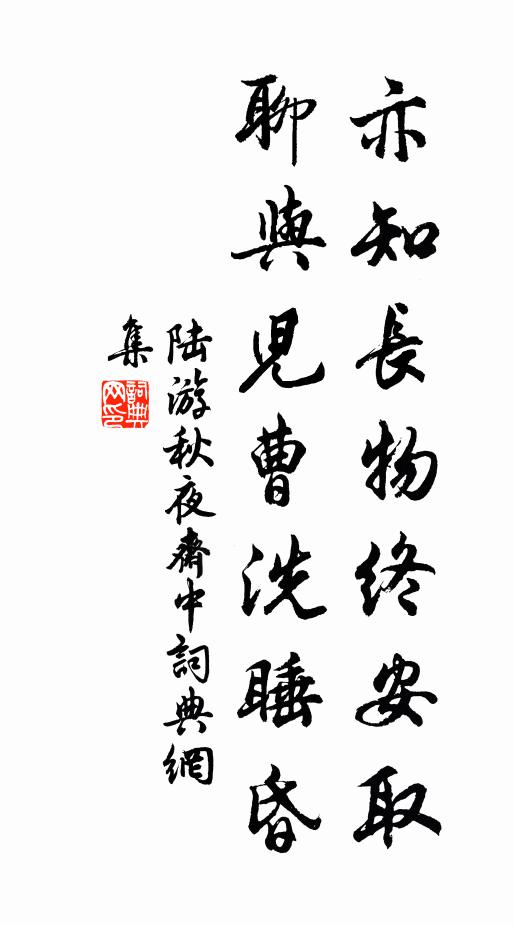 亦知長物終安取
聊與兒曹洗睡昏
陸游秋夜齋中詞典網
集
詞典網印